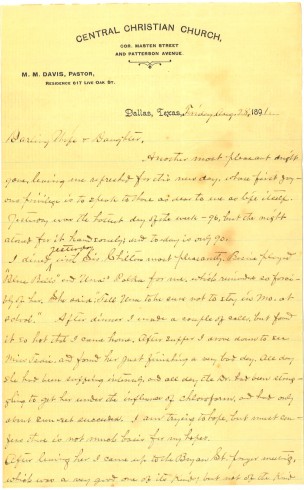 CENTRAL CHRISTIAN CHURCH,
COR. MASTEN STREET
AND PATTERSON AVENUE.
M. M. DAVIS, PASTOR,
RESIDENCE 617 LIVE OAK ST.
Dallas, Texas, Friday Aug 28, 1891.
Darling Wife & Daughter,
Another most pleasant night
gone, leaving me refreshed for this new day, whose first
privilege is to speak to those as dear to me as life itself.
Yesterday was the hottest day of the week - 96, but the night
atoned for it handsomely and to-day is only 90.
yesterday
I dined with Sis most pleasantly. played
"Blue Bells" and Una's Polka for me, which reminded so forci-
bly of her. She said: Tell Una to be sure not to stay in Mo. at
school." After dinner I made a couple of calls, but found
it so hot that I came home. After supper I went down to see
Miss and found her just finishing a very bad day. All day
she had been suffering intensely, and all day the Dr. had been strug-
gling to get her under the influence of chloroform, and had only
about succeeded. I am trying to hope, but must con-
fess there is not much basis for my hopes.
After leaving her I came up to the Bryan St. prayer meeting,
which was a very good one of its kind, but not of the kind